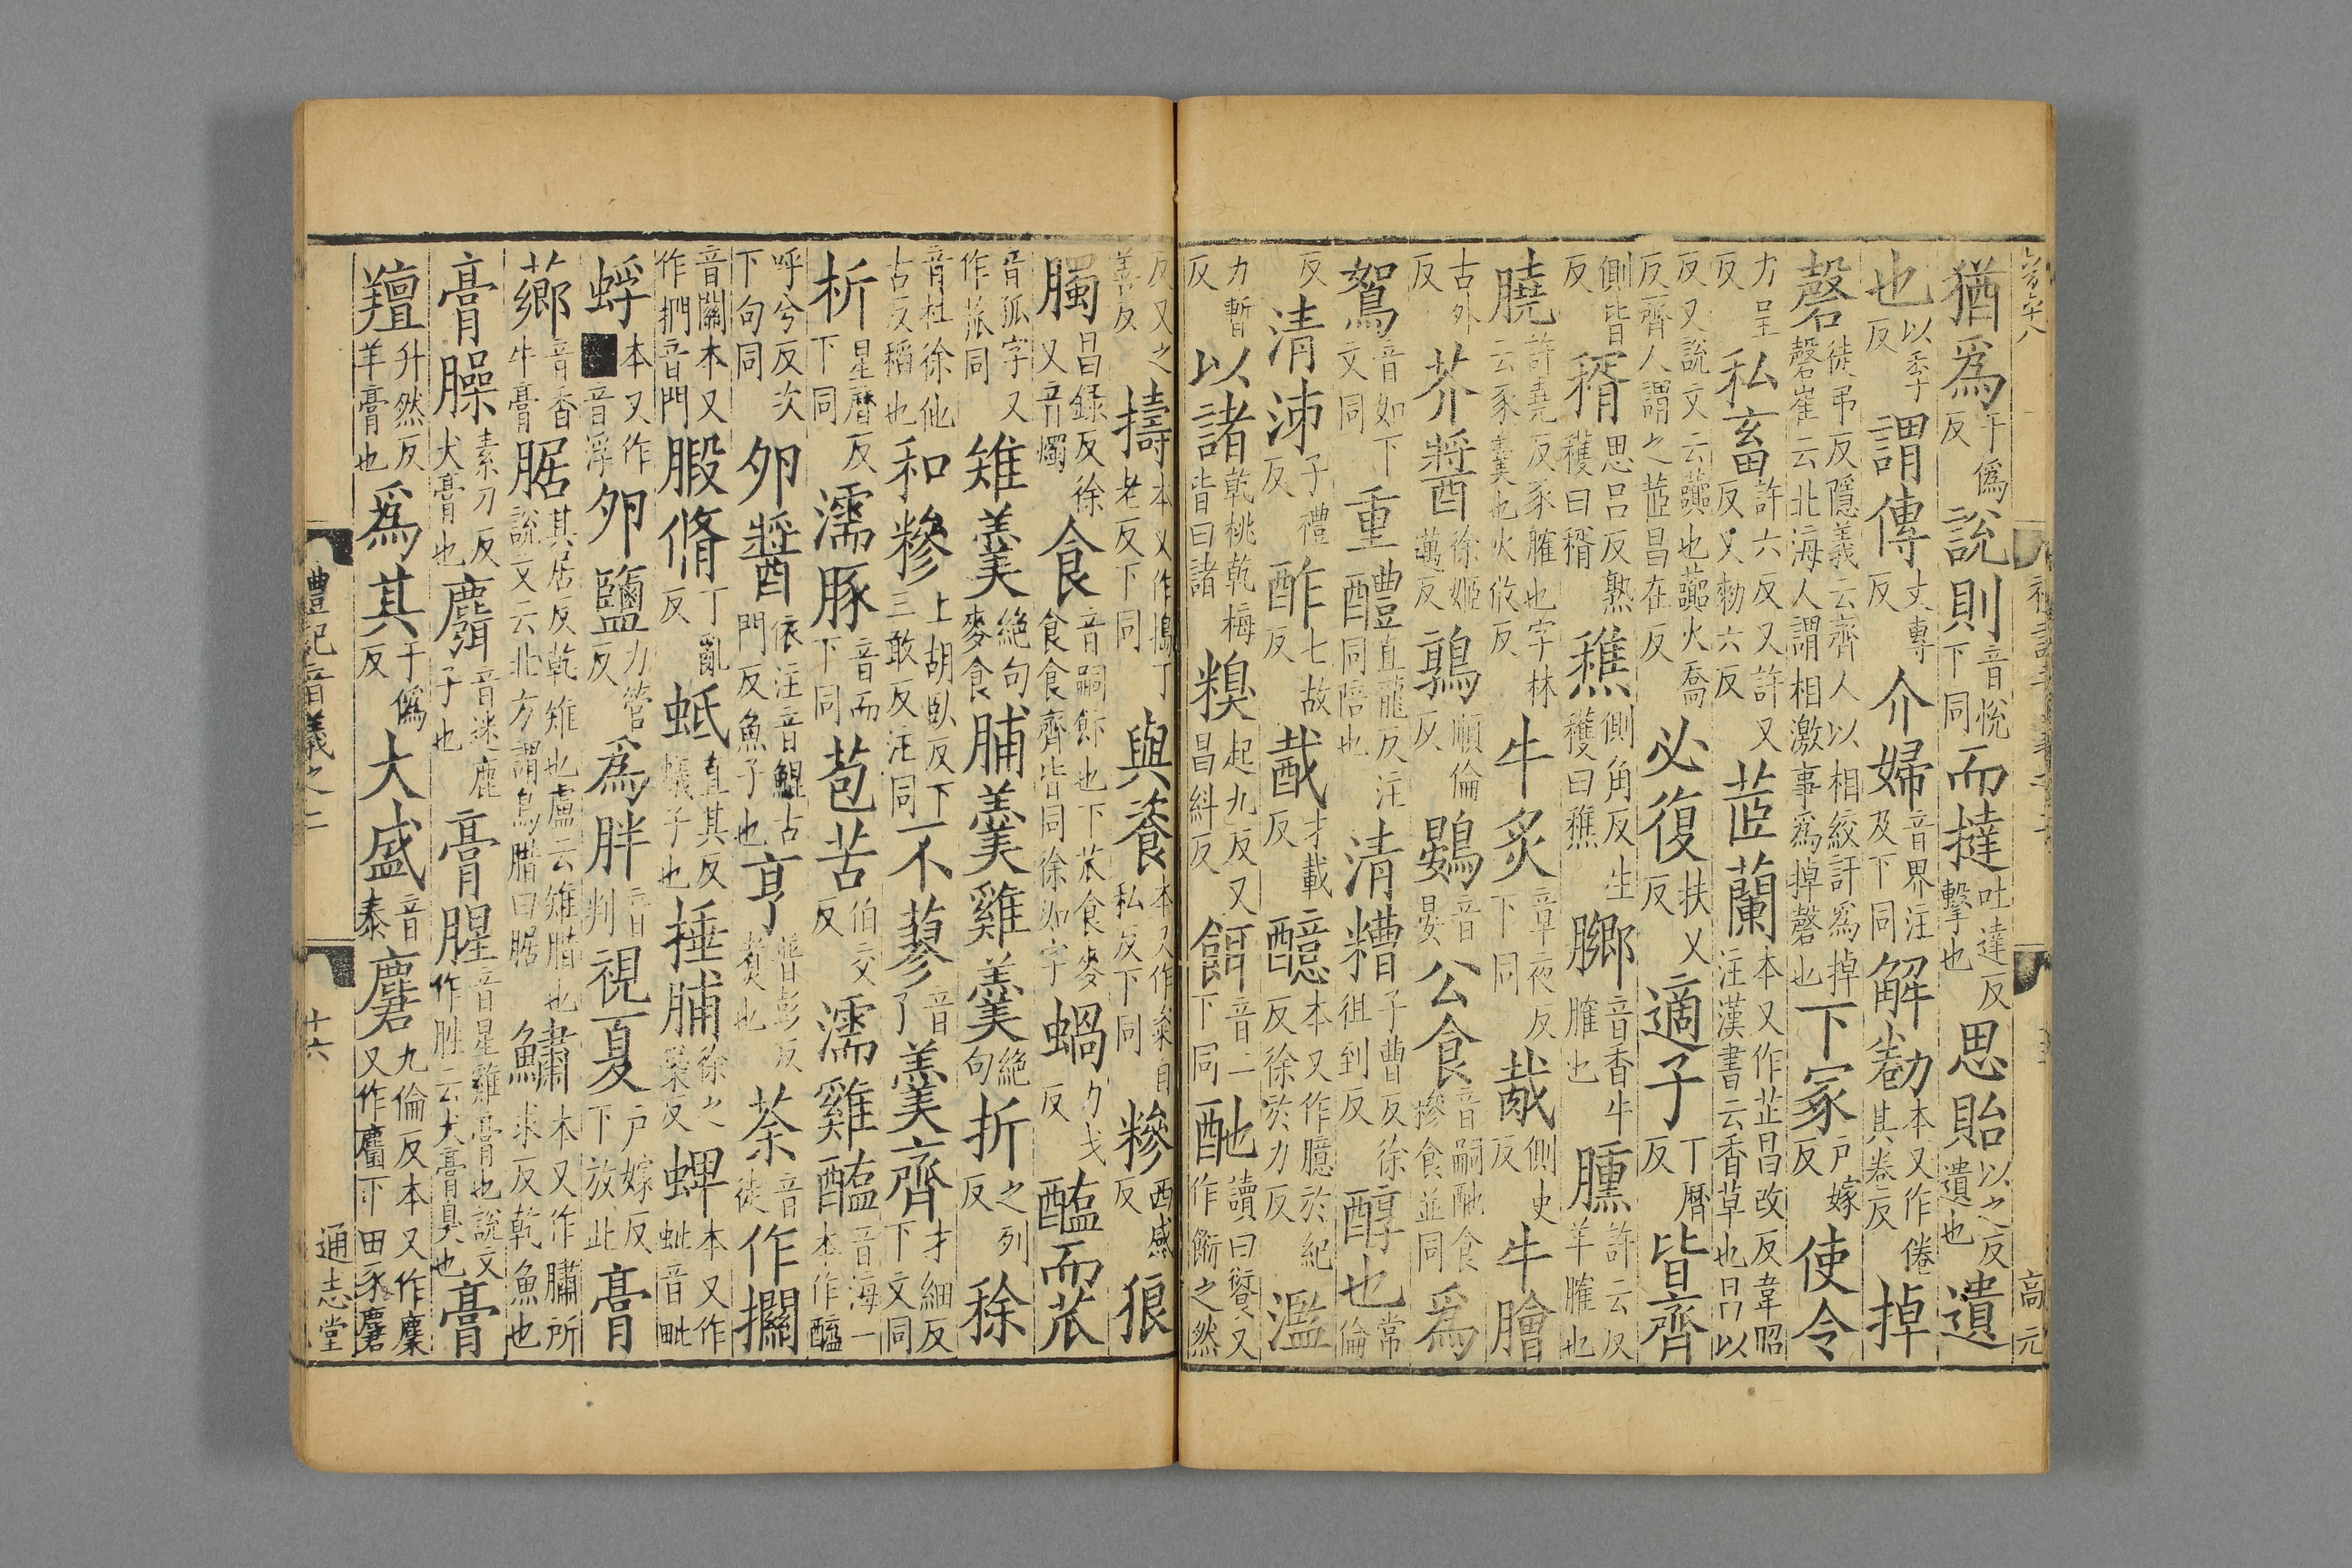 猶爲于僞反說則音悅下同而撻吐達反擊也思貽以之反遺也遺
也以季反謂傳丈專反介婦音界注及下同解勌本又作倦其卷反掉
磬徒弔反隱義云齊人以相絞訐爲掉磬崔云北海人謂相激事爲掉磬也下冢戶嫁反使令
力呈反私畜許六反又許又反又勑六反茝蘭本又作芷昌改反韋昭注漢書云香草也昌以
反又說文云虈也虈火喬反齊人謂之茝昌在反必復扶又反適子丁曆反皆齊
側皆反稰思呂反熟穫曰稰穛側角反生穫曰穛膷音香牛膮也臐許云反羊膮也
膮許堯反豕膮也字林云豕羹也火攸反牛炙章夜反下同胾側史反牛膾
古外反芥醬徐姬邁反鶉順倫反鷃音晏公食音嗣酏食糝食並同爲
鴽音如下文同重醴直龍反注同陪也清糟子曹反徐徂到反醇也常倫
反清泲子禮反酢七故反酨才載反醷本又作臆於紀反徐於力反濫
力暫反以諸乾桃乾梅皆曰諸糗起九反又昌糾反餌音二下同酏讀曰餰又作飰之然
反又之善反擣本又作搗丁老反下同與餈本又作粢自私反下同糝西感反狼
臅昌錄反徐又音燭食音嗣飰也下苽食麥食食齊皆同徐如字蝸力戈反醢而苽
音孤字又作菰同雉羹絕句麥食脯羹雞羹絕句折之列反稌
音杜徐他古反稻也和糝上胡臥反下三敢反注同不蓼音了羹齊才細反下文同
析星曆反下同濡豚音而下同苞苦伯交反濡雞醢音海一本作醓
呼兮反次下句同卵醬依注音鯤古門反魚子也亨普彭反煮也荼音徒作攔
音關本又作捫音門腶脩丁亂反蚳直其反蟻子也捶脯徐之橤反蜱本又作蚍音毗
蜉本又作■音浮卵鹽力管反爲胖音判視夏戶嫁反下放此膏
薌音香牛膏腒其居反乾雉也盧云雉腊也說文云北方謂鳥腊曰腒鱐本又作䐹所求反乾魚也
膏臊素刀反犬膏也麛音迷鹿子也膏腥音星雞膏也說文作胜云犬膏臭也膏
羶升然反羊膏也爲其于僞反大盛音泰麕九倫反本又作麋又作麏下田豕麕
禮記音義之二
十六
通志堂
高元